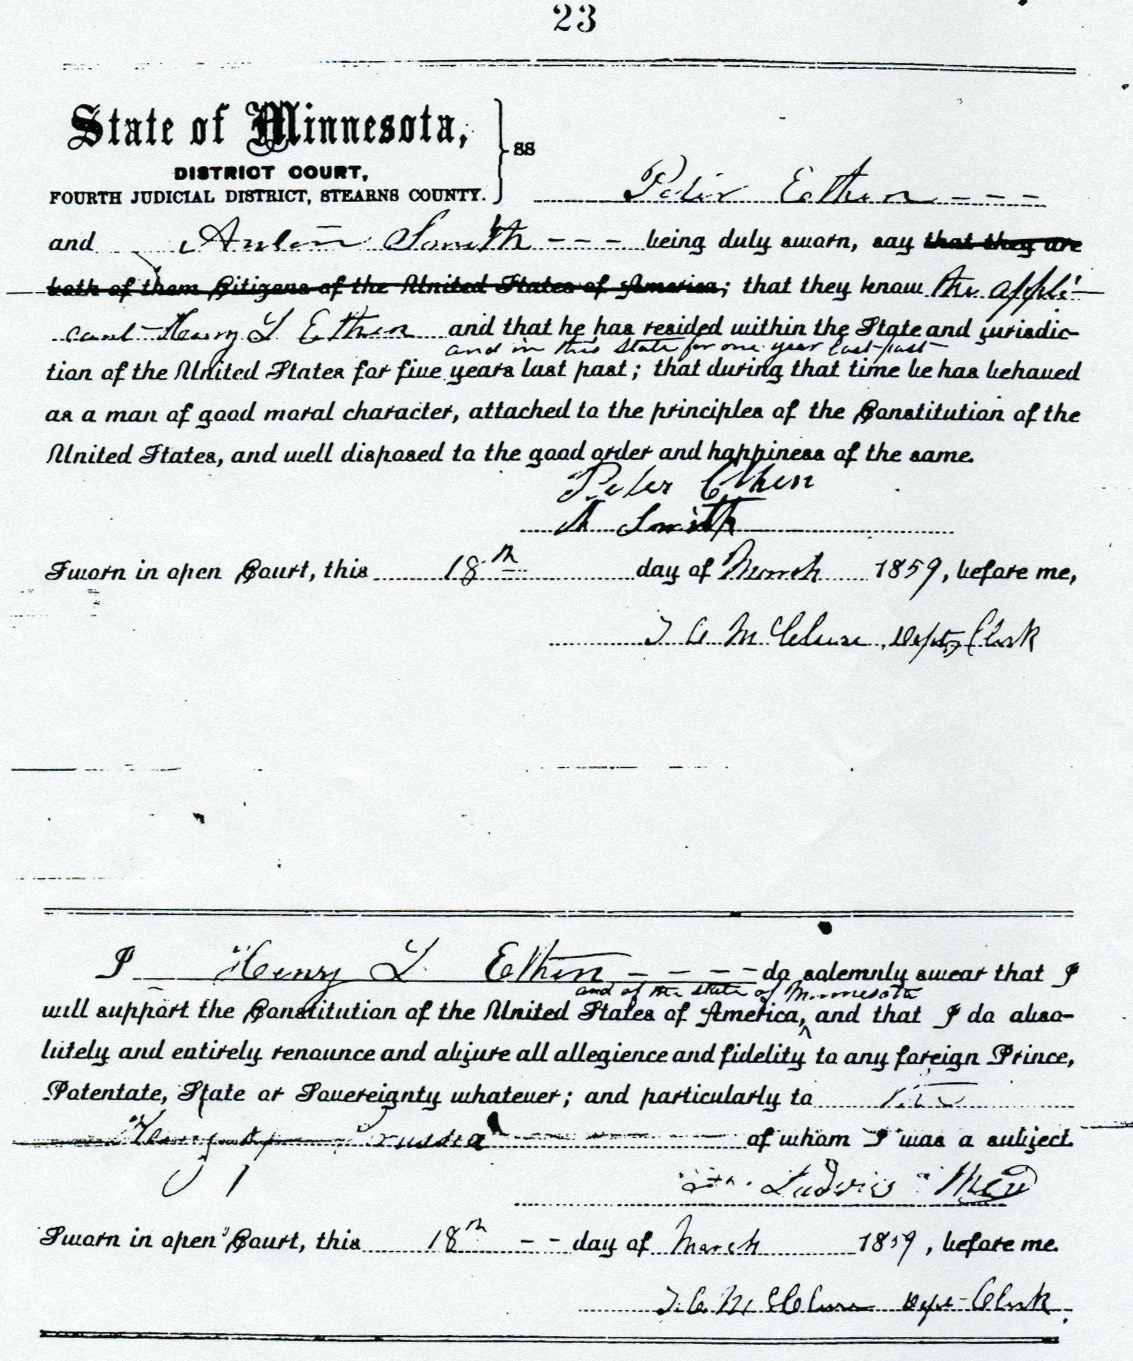 23
State of Minnesota,
DISTRICT COURT,
FOURTH JUDICIAL DISTRICT, STEARNS COUNTY.
ss
Peter Ethen - - -
and Anton Smith - - - being duly sworn, say that they are
both of them Citizens of the United States of America; that they know the appli-
cant Henry L Ethen and that he has resided within the State and jurisdic-
and in this State for one year last past
tion of the United States for five years last past; that during that time he has behaved
as a man of good moral character, attached to the principles of the Constitution of the
United States, and well disposed to the good order and happiness of the same.
Peter Ethen
A Smith
Sworn in open Court, this 18th day of March 1859, before me,
T C McClure, Depty Clerk
I Henry L Ethen - - - - do solemnly swear that I
and of the State of Minnesota
will support the Constitution of the United States of America, and that I do abso-
lutely and entirely renounce and abjure all allegience and fidelity to any foreign Prince,
Potentate, State or Sovereignty whatever; and particularly to the
King of Prussia of whom I was a subject.
Ludvig
Sworn in open Court, this 18th - - day of March 1859, before me.
T. C. McClure Dept Clerk